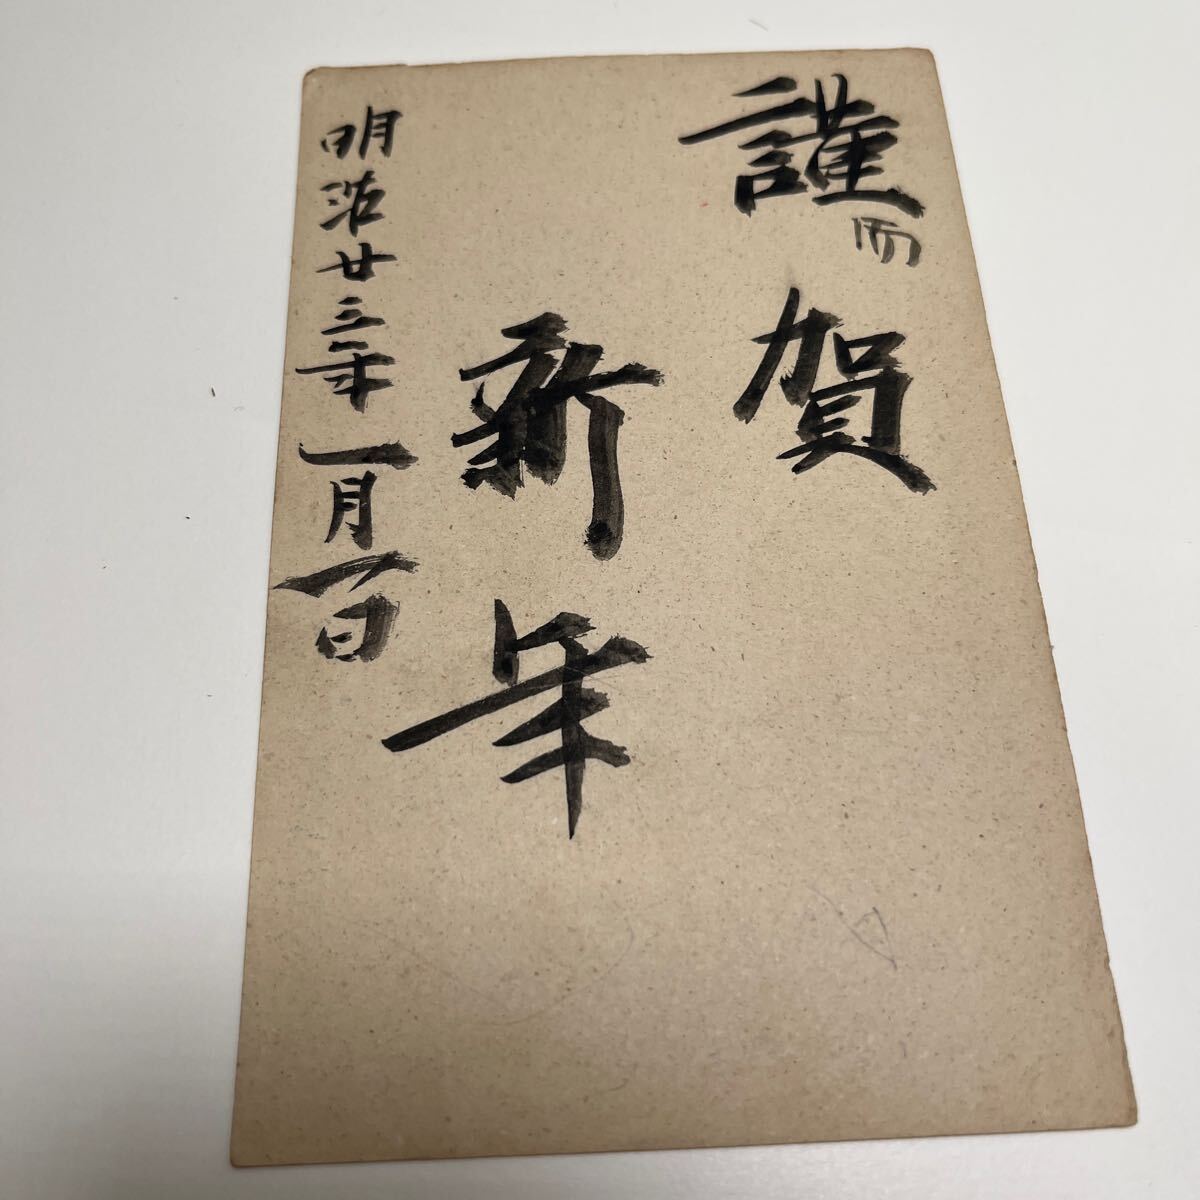 謹而賀
新年
明治廿三年一月一日